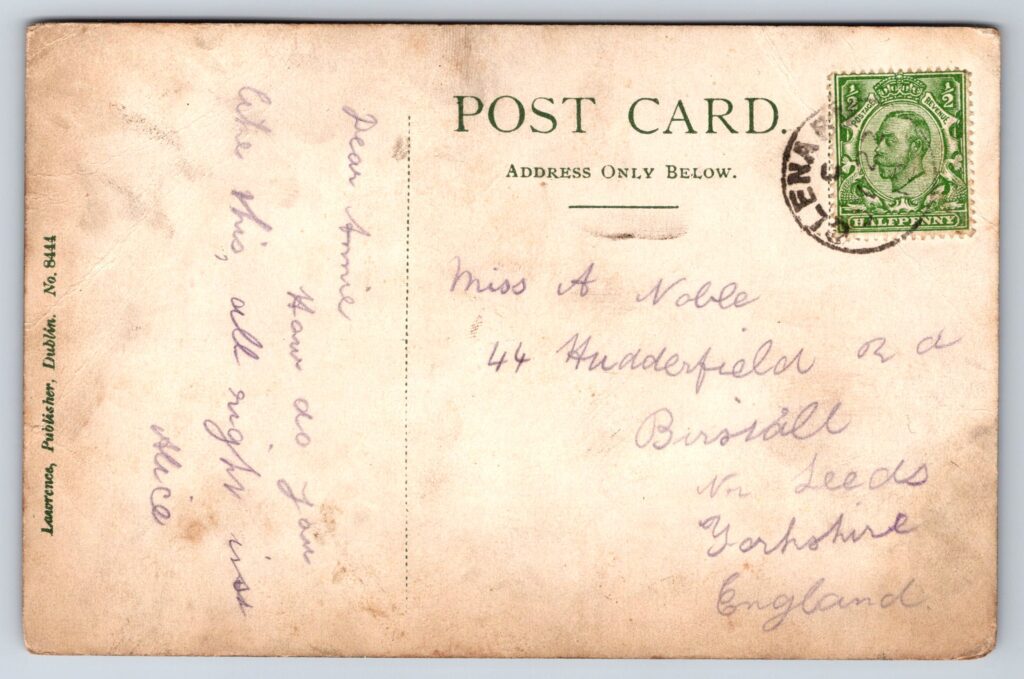 POST CARD.
ADDRESS ONLY BELOW.
½ ½
POSTAGE REVENUE
HALFPENNY
Dear Annie
How do you
like this, all right
Alice
Miss A Noble
44 Hudderfield Rd
Birstall
Nr Leeds
Yorkshire
England.
Lawrence, Publisher, Dublin. No. 8444